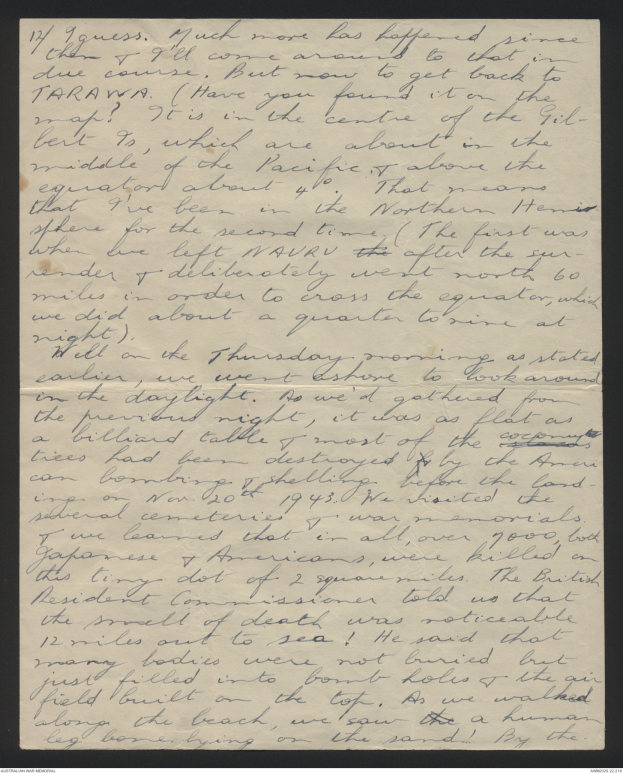 12/ I guess. Much more has happened since
then & I'll come around to that in
due course. But now to get back to
TARAWA. (Have you found it on the
map? It is in the centre of the Gil-
bert Is, which are about in the
middle of the Pacific, & above the
equator about 4°. That means
that I've been in the Northern Hemis
phere for the second time. (The first was
when we left NAURU the after the sur-
render & deliberately went north 60
miles in order to cross the equator, which
we did about a quarter to nine at
night).
Well on the Thursday morning as stated
earlier, we went ashore to look around
in the daylight. As we'd gathered from
the previous night, it was as flat as
a billiard table & most of the coconut
trees had been destroyed by the Ameri
can bombing & shelling before the land-
ing on Nov. 20th 1943. We visited the
several cemeteries & war memorials
& we learned that in all, over 7000, both
Japanese & Americans, were killed on
this tiny dot of 2 square miles. The British
Resident Commissioner told us that
the smell of death was noticeable
12 miles out to sea! He said that
many bodies were not buried but
just filled into bomb holes & the air
field built on the top. As we walked
along the beach, we saw the a human
leg bone lying on the sand! By the
AUSTRALIAN WAR MEMORIAL